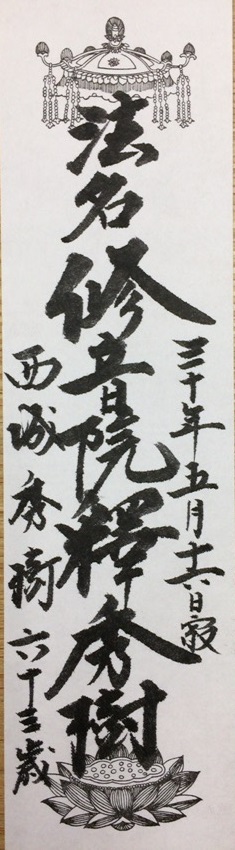 三十年五月十六日寂
法名 修音院釋秀樹
西城秀樹 六十三歳